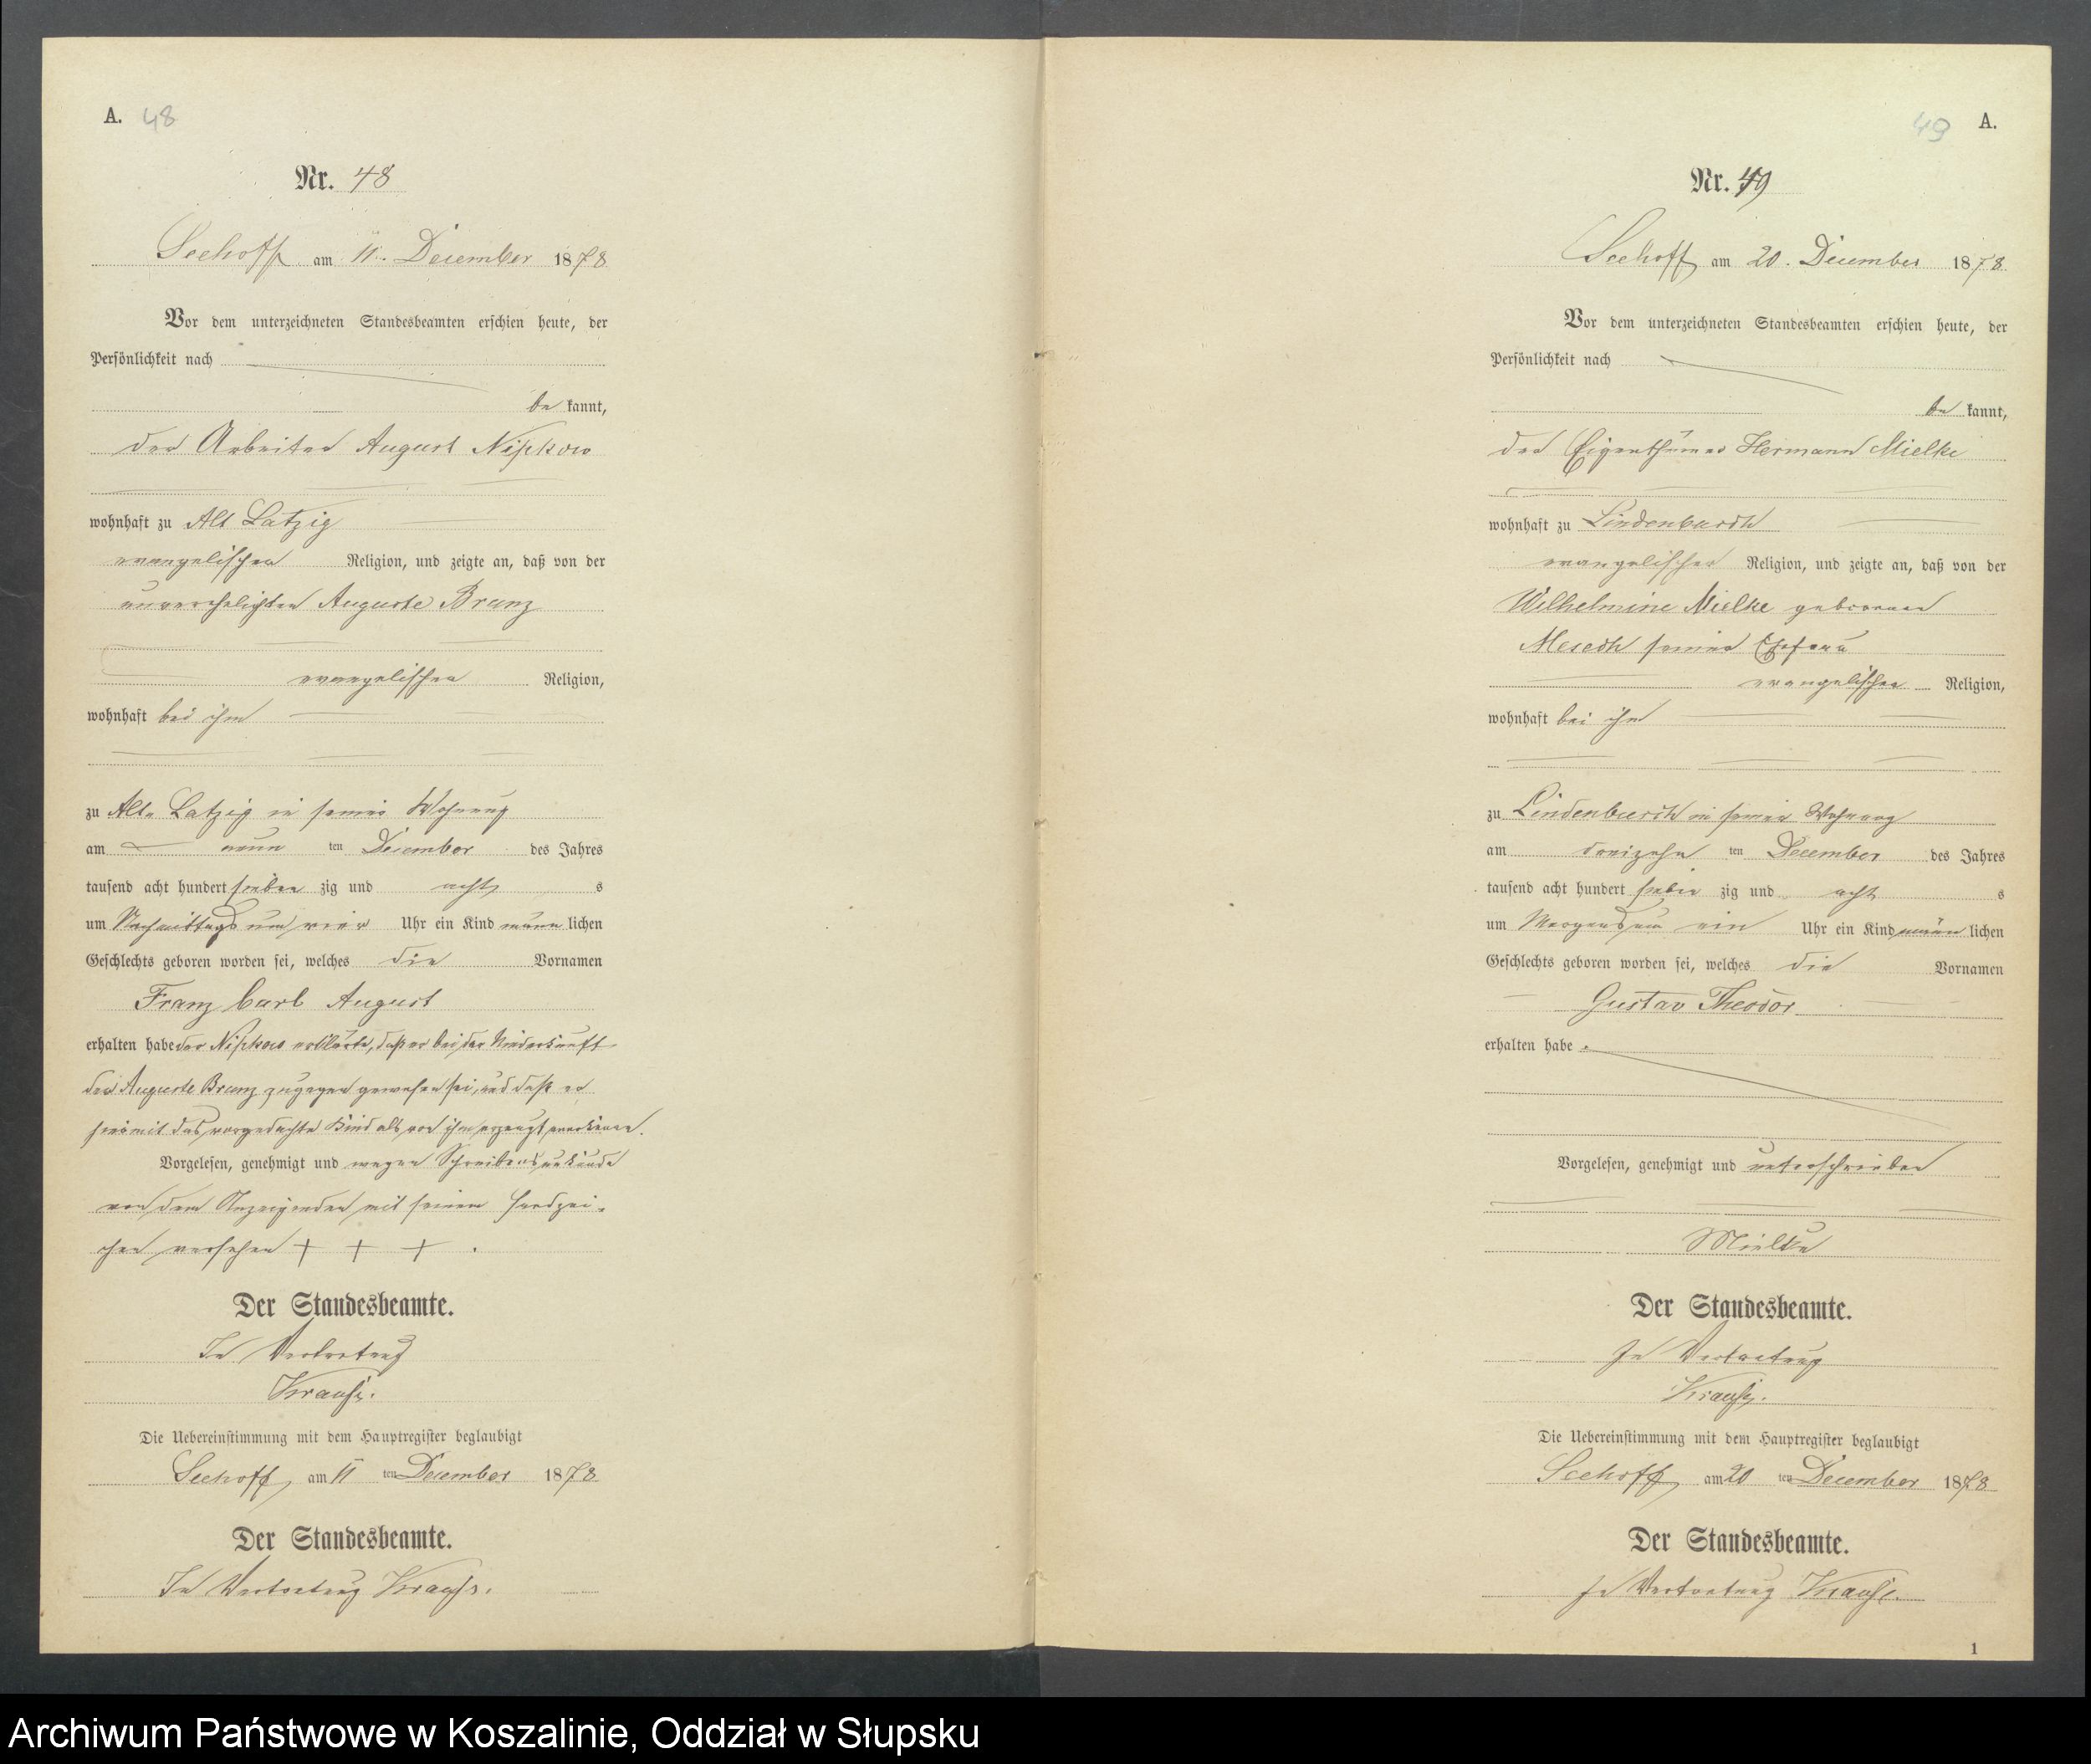 A. 48
Nr. 48
Seehoff am 11. December 1878
Vor dem unterzeichneten Standesbeamten erschien heute, der
Persönlichkeit nach
be kannt,
der Arbeiter August Nipkow
wohnhaft zu Alt Latzig
evangelischer Religion, und zeigte an, daß von der
unverehelichten Auguste Brunz
evangelischer Religion,
wohnhaft bei ihm
zu Alt Latzig in seiner Wohnung
am neun ten December des Jahres
tausend acht hundert sieben zig und acht s
um Nachmittags um vier Uhr ein Kind männ lichen
Geschlechts geboren worden sei, welches die Vornamen
Franz Carl August
erhalten habe der Nipkow erklärte, daß er bei der Niederkunft
der Auguste Brunz zugegen gewesen sei, und daß er
hiermit das vorgedachte Kind als von ihm erzeugt anerkenne.
Vorgelesen, genehmigt und wegen Schreibensunkunde
von dem Anzeigenden mit seinem Handzei-
chen versehen + + + .
Der Standesbeamte.
In Vertretung
Krause.
Die Uebereinstimmung mit dem Hauptregister beglaubigt
Seehoff, am 11 ten December 1878
Der Standesbeamte.
In Vertretung Krause.
49 A.
Nr. 49
Seehoff am 20. December 1878
Vor dem unterzeichneten Standesbeamten erschien heute, der
Persönlichkeit nach
be kannt,
der Eigenthümer Hermann Mielke
wohnhaft zu Lindenbusch
evangelischer Religion, und zeigte an, daß von der
Wilhelmine Mielke geborenen
seiner Ehefrau
evangelischer Religion,
wohnhaft bei ihm
zu Lindenbusch in seiner Wohnung
am dreizehn ten December des Jahres
tausend acht hundert sieben zig und acht s
um Morgens um ein Uhr ein Kind männ lichen
Geschlechts geboren worden sei, welches die Vornamen
Gustav Theodor
erhalten habe .
Vorgelesen, genehmigt und unterschrieben
Mielke
Der Standesbeamte.
In Vertretung
Krause.
Die Uebereinstimmung mit dem Hauptregister beglaubigt
Seehoff, am 20 ten December 1878
Der Standesbeamte.
In Vertretung Krause.
1
Archiwum Państwowe w Koszalinie, Oddział w Słupsku